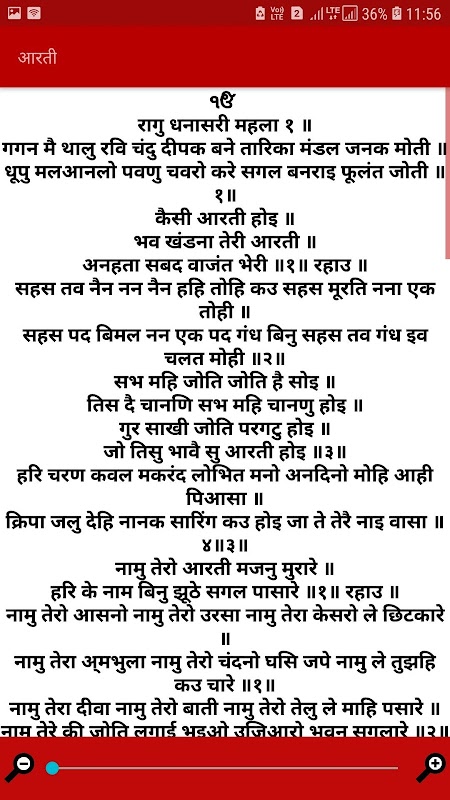 Vo)) LTE 2 LTE 36% 11:56
आरती
੧ੴ
रागु धनासरी महला १ ॥
गगन मै थालु रवि चंदु दीपक बने तारिका मंडल जनक मोती ॥
धूपु मलआनलो पवणु चवरो करे सगल बनराइ फूलंत जोती ॥
१॥
कैसी आरती होइ ॥
भव खंडना तेरी आरती ॥
अनहता सबद वाजंत भेरी ॥१॥ रहाउ ॥
सहस तव नैन नन नैन हहि तोहि कउ सहस मूरति नना एक
तोही ॥
सहस पद बिमल नन एक पद गंध बिनु सहस तव गंध इव
चलत मोही ॥२॥
सभ महि जोति जोति है सोइ ॥
तिस दै चानणि सभ महि चानणु होइ ॥
गुर साखी जोति परगटु होइ ॥
जो तिसु भावै सु आरती होइ ॥३॥
हरि चरण कवल मकरंद लोभित मनो अनदिनो मोहि आही
पिआसा ॥
क्रिपा जलु देहि नानक सारिंग कउ होइ जा ते तेरै नाइ वासा ॥
४॥३॥
नामु तेरो आरती मजनु मुरारे ॥
हरि के नाम बिनु झूठे सगल पासारे ॥१॥ रहाउ ॥
नामु तेरो आसनो नामु तेरो उरसा नामु तेरा केसरो ले छिटकारे
॥
नामु तेरा अ्मभुला नामु तेरो चंदनो घसि जपे नामु ले तुझहि
कउ चारे ॥१॥
नामु तेरा दीवा नामु तेरो बाती नामु तेरो तेलु ले माहि पसारे ॥
नाम तेरे की जोति लगाई भइओ उजिआरो भवन सगलारे ॥२॥